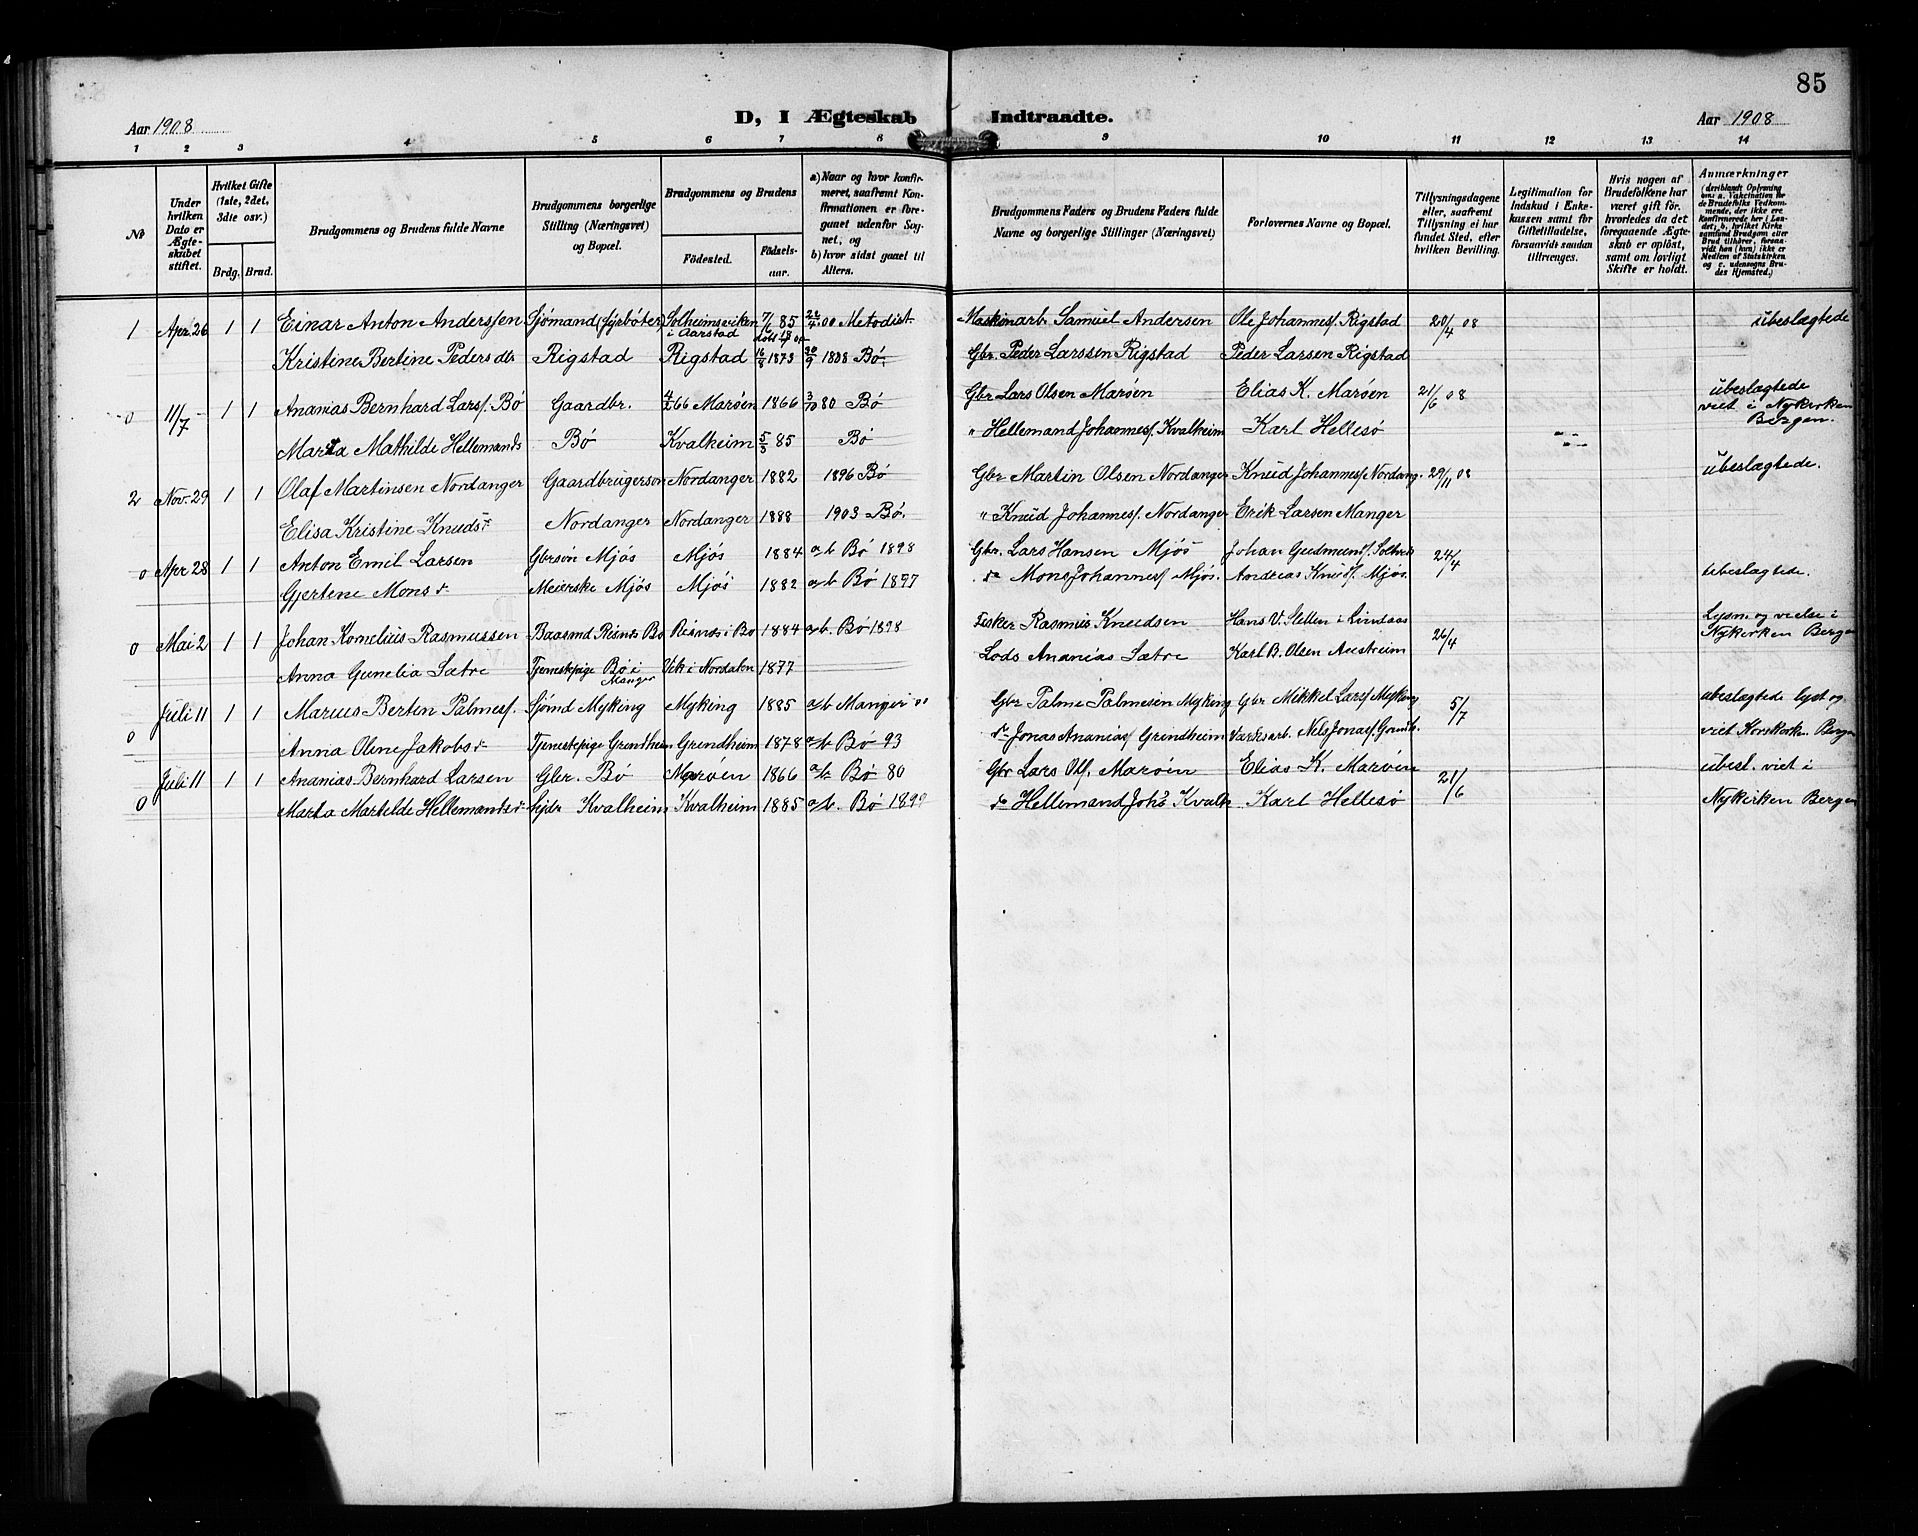 85
Aar 1908 D, I Ægteskab Indtraadte. Aar 1908
1 2 3 4 5 6 7 8 9 10 11 12 13 14
№
Under hvilken Dato er Ægteskabet stiftet.
Hvilket Gifte (1ste, 2det, 3die osv.)
Brdg. Brud.
Brudgommens og Brudens fulde Navne
Brudgommens borgerlige Stilling (Næringsvei) og Bopæl.
Brudgommens og Brudens
Födested. Födsels-aar.
a) Naar og hvor konfirmeret, saafremt Konfirmationen er foregaaet udenfor Sognet, og
b) hvor sidst gaaet til Alters.
Brudgommens Faders og Brudens Faders fulde Navne og borgerlige Stillinger (Næringsvei)
Forlovernes Navne og Bopæl.
Tillysningsdagene eller, saafremt Tillysning ei har fundet Sted, efter hvilken Bevilling.
Legitimation for Indskud i Enkekassen samt for Giftetilladelse, forsaavidt saadan tiltrænges.
Hvis nogen af Brudefolkene har været gift för, hvorledes da det foregaaende Ægteskab er oplöst, samt om lovligt Skifte er holdt.
Anmærkninger
(deriblandt Oplysning om: a. Vakcination for de Brudefolks Vedkommende, der ikke ere konfirmerede her i Landet; b. hvilket Kirkesamfund Brudgom eller Brud tilhörer, forsaavidt han (hun) ikke er Medlem af Statskirken og c. udensogns Brudes Hjemsted.)
1 Apr. 26 1 1 Einar Anton Anderssen Sjömand (Fyrböter) Solheimsviken i Aarstad 7/6 85 26/4 00 Metodist Maskinarb. Samuel Andersen Ole Johannesf. Rigstad 20/4 08 übeslægtede
Kristine Bertine Pedersdtr Rigstad Rigstad 16/8 1873 30/9 1888 Bø. Gbr. Peder Larssen Rigstad Peder Larsen Rigstad
0 11/7 1 1 Ananias Bernhard Larsf. Bø Gaardbr. 4/2 66 Marøen 1866 3/10 80 Bø Gbr Lars Olsen Marøen Elias K. Marøen 21/6 08 übeslægtede viet i Nykirken Bergen.
Marta Mathilde Hellemands Bø Kvalheim 5/3 85 Bø " Hellemand Johannesf. Kvalheim Karl Hellesø
2 Nov. 29 1 1 Olaf Martinsen Nordanger Gaardbrugersøn Nordanger 1882 1896 Bø Gbr Martin Olsen Nordanger Knud Johannesf. Nordang. 29/11 08 übeslægtede.
Elisa Kristine Knudsdr Nordanger Nordanger 1888 1903 Bø. " Knud Johannesf. Nordanger Erik Larsen Manger
0 Apr 28 1 1 Anton Emil Larsen Gbrsøn Mjøs Mjøs 1884 a/b Bø 1898 Gbr. Lars Hansen Mjøs Johan Gudmundf. Soltveit 24/4
Gjertine Monsdr Meierske Mjøs Mjøs 1882 a/b Bø 1897 do Mons Johannesf. Mjøs. Andreas Knudf. Mjøs. ubeslægtede.
0 Mai 2 1 1 Johan Kornelius Rasmussen Baasmd Risnes Bø Risnes i Bø 1884 a/b. Bø 1898 Fisker Rasmus Knudsen Hans V. Sletten i Lindaas 26/4 Lysn. og vielse i Nykirken Bergen
Anna Gunelia Sætre Tjenestepige Bø i Manger Vik i Nordalen 1877 Lods Ananias Sætre Karl B. Olsen Austreim
0 Juli 11 1 1 Marius Berten Palmesf. Sjømd Myking Myking 1885 a/b Manger 00 Gbr Palme Palmesen Myking Gbr Mikkel Larsf Myking 5/7 ubeslægtede lyst og
Anna Oline Jakobsdr Tjenestepige Grendheim Grendheim 1878 a/b Bø 93 do Jonas Ananiasf Grendheim Værksarb. Nils Jonasf. viet Korskirken Bergen
0 Juli 11 1 1 Ananias Bernhard Larsen Gbr. Bø Marøen 1866 a/b Bø 80 Gbr Lars Olsf. Marøen Elias K. Marøen 21/6 übesl. viet i
Marta Martilde Hellemandsdr Kvalheim Kvalheim 1885 a/b. Bø 1899 do Hellemand Johs Kvalh Karl Hellesø Nykirken Bergen